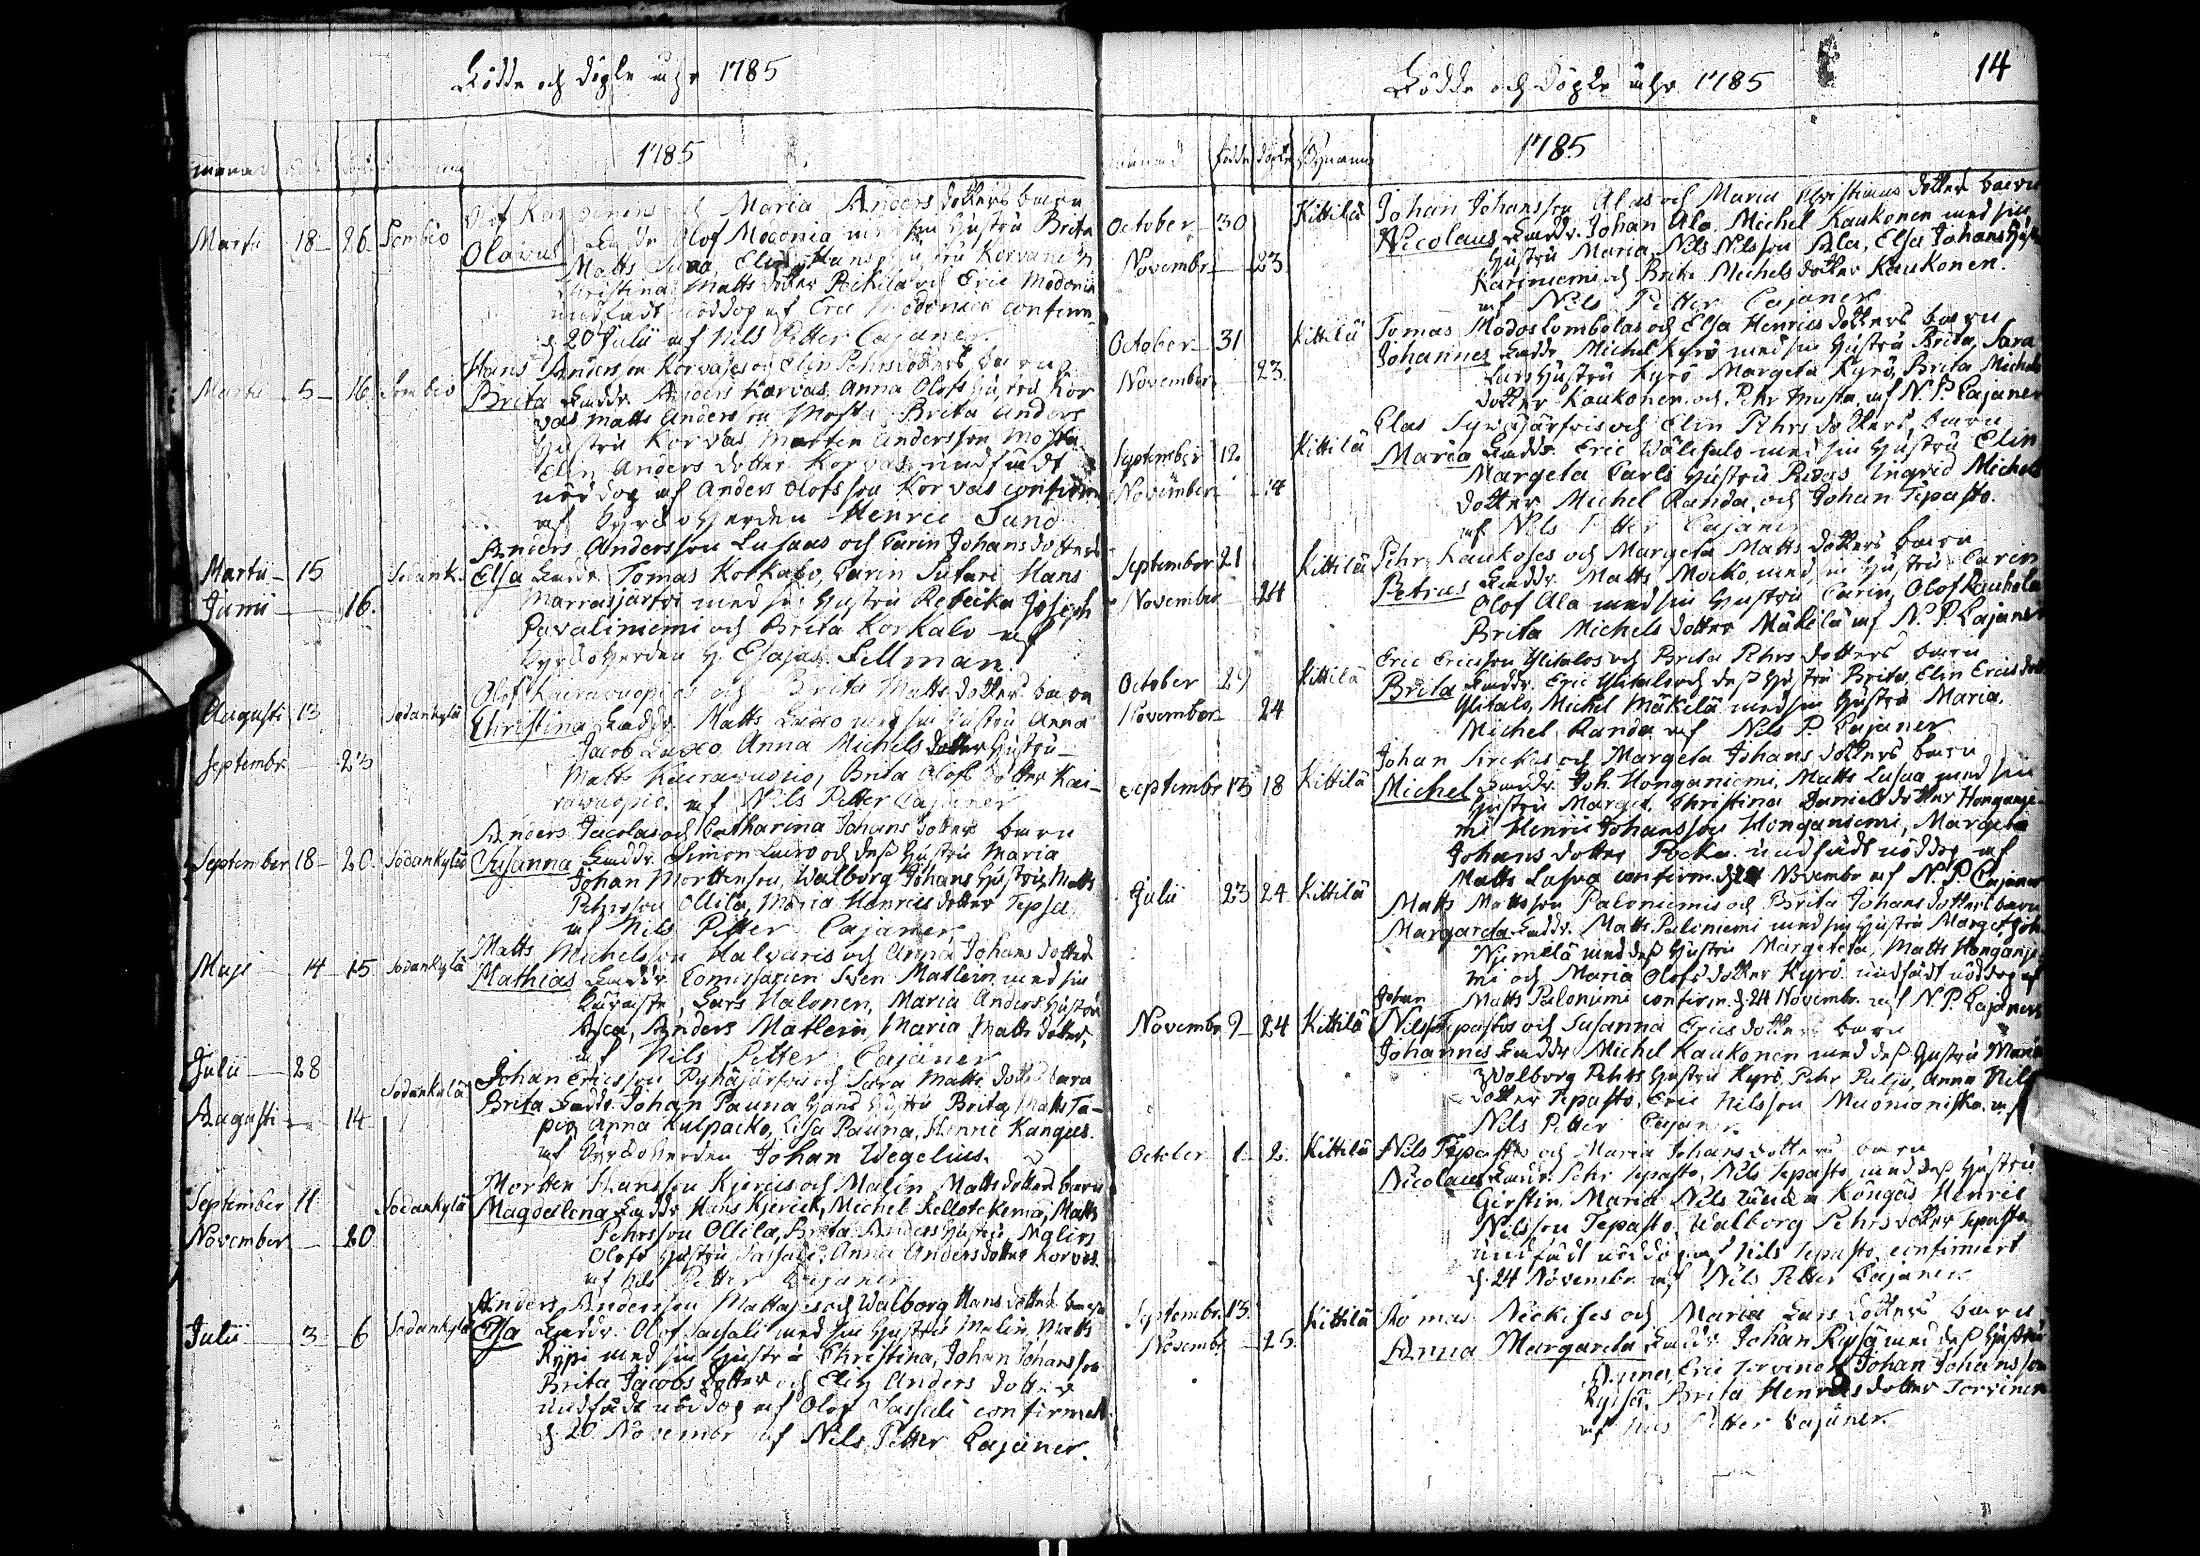 Födde och döpte åhr 1785
1785
Martii 18 26 Sombio
Maria Anders dotters barn
Olavus Faddr. Olof Modonia med sin Hustru Brita
Matts
Christina Matts dotter och Eric Modonia
nöddop af Eric Modonia confirm.
d. 20 Julii af Nils Petter Cajaner.
Martii 5 16 Sombio
Hans Andersson Korvas och Elin Pehrs dotters barn
Brita Faddr. Anders Korvas, Anna Olofs Hustru Kor
vas Matts Andersson Mosta, Brita Anders
Hustru Korvas Morten Andersson Mosta
Elin Anders dotter Korvas undfådt
nöddop af Anders Olofsson Korvas confirm.
af Kyrkoherden Henric Sund
Martii 15 Sodank.
Junii 16.
Anders Andersson Lusaas och Carin Johans dotters
Elsa Faddr. Tomas Korkalo, Carin Hans
Marrasjärfvi med sin Hustru Rebecka Joseph
Pavaliniemi och Brita Korkalo af
Kyrkoherden H. Esajas Fellman.
Augusti 13 Sodankylä
Septembr. 23
Olof och Brita Matts dotters barn
Christina Faddr. Matts med sin Hustru Anna
Jacob Anna Michels dotter Hustru
Matts Brita Olofs dotter Kai-
af Nils Petter Cajaner
September 18 20. Sodankylä
Anders Jacolas och Catharina Johans dotters barn
Susanna Faddr. Simon och dess Hustru Maria
Johan Mortensson, Walborg Johans Hustru, Matts
Pehrsson Ollila, Maria Henrics dotter Tepsa
af Nils Petter Cajaner
Maji 14 15 Sodankylä
Matts Michelsson Halvaris och Anna Johans dotters
Mathias Faddr. Comissarien Sven Matlein med sin
Lars Halonen, Maria Anders Hustru
Anders Matlein, Maria Matts dotter,
af Nils Petter Cajaner
Julii 28 Sodankylä
Augusti 14
Johan Ericsson Pyhäjärfvis och Sara Matts dotters barn
Brita Faddr. Johan Pauna, Hans Hustru Brita, Matts Ta-
pio, Anna Kulpacko, Lisa Pauna, Henric Kangus.
af Kyrkoherden Johan Wegelius.
September 11 Sodankylä
November 20
Morten Hansson Kjerics och Malin Matts dotters barn
Magdalena Faddr. Hans Kjerick, Michel Kellotekema, Matts
Pehrsson Ollila, Brita Anders Hustru,
Olofs Hustru Sassali, Anna Anders dotter Korvas.
af Nils Petter Cajaner
Julii 3 6 Sodankylä
Anders Andersson Mattas och Walborg Hans dotters barn
Elsa Faddr. Olof Sassali med sin Hustru Malin, Matts
Rypi med sin Hustru Christina, Johan Johansson
Brita Jacobs dotter och Elin Anders dotter
undfådt nöddop af Olof Sassali confirmert
d. 20 Novembr af Nils Petter Cajaner.
14
Födde och Döpte åhr 1785
månad födde döpte Bynamn 1785
October 30 Kittilä
Novembr. 23
Johan Johansson Alas och Maria Christians dotters barn
Nicolaus Faddr. Johan Ala. Michel Kaukonen med sin
Hustru Maria, Nils Nilsson Ala, Elsa Johans Hustru
Kariniemi och Brita Michels dotter Kaukonen.
af Nils Petter Cajaner
October 31 Kittilä
November 23.
Tomas Modoslombolas och Elsa Henrics dotters barn
Johannes Faddr. Michel Kyrö med sin Hustru Brita, Sara
Lars Hustru Kyrö Margeta Kyrö, Brita Michels
dotter Kaukonen och Pehr Musta af N. P. Cajaner
September 12. Kittilä
November 14
Elas Sywäjärfvis och Elin Pehrs dotters barn
Maria Faddr. Eric Wälitalo med sin Hustru Elin
Margeta Carls Hustru Ingrid Michels
dotter Michel Randa, och Johan Tepasto.
af Nils Petter Cajaner
September 21 Kittilä
November 24
Pehr Kaukoses och Margeta Matts dotters barn
Petrus Faddr. Matts Mocko, med sin Hustru Carin
Olof Ala med sin Hustru Carin, Olof
Brita Michels dotter Mäkilä af N. P. Cajaner
October 29 Kittilä
November 24
Eric Ericsson Ylitalos och Brita Pehrs dotters barn
Brita Faddr. Eric Ylitalo och dess Hustru Brita, Elin Erics dotter
Ylitalo, Michel Mäkilä med sin Hustru Maria.
Michel Randa af Nils P. Cajaner
Septembr 13 18 Kittilä
Johan Sirckas och Margeta Johans dotters barn
Michel Faddr. Joh. Honganiemi, Matts Lusua med sin
Hustru Marget. Christina Daniels dotter Honganie-
mi Henric Johansson Honganiemi, Margeta
Johans dotter undfådt nöddop af
Matts Lusua confirm. d. 24 Novembr af N. P. Cajaner
Julii 23 24 Kittilä
Matts Mattsson Paloniemis och Brita Johans dotters barn
Margareta Faddr. Matts Paloniemi med sin Hustru Marget. Joh.
Njemelä med dess Hustru Margeta, Matts Honganie-
mi och Maria Olofs dotter Kyrö undfådt nöddop af
Matts Paloniemi confirm. d. 24 Novembr. af N. P. Cajaner
Novembr. 9 24 Kittilä
Johan
Nils Tepastos och Susanna Erics dotters barn
Johannes Faddr. Michel Kaukonen med dess Hustru Maria
Walborg Pehrs Hustru Kyrö, Pehr Pulju, Anna Nils
dotter Tepasto, Eric Nilsson Muonioniska. af
Nils Petter Cajaner.
October 1. 2. Kittilä
Nils Tepastos och Maria Johans dotters barn
Nicolaus Faddr. Pehr Tepasto, Nils Tepasto med dess Hustru
Girstin. Maria Nils Köngäs Henric
Nilsson Tepasto. Walborg Pehrs dotter Tepasto
undfådt nöddop af Nils Tepasto, confirmert
d. 24 Novembr. af Nils Petter Cajaner
Septembr. 13. Kittilä
Novembr. 25.
Tomas Nickises och Maria Lars dotters barn
Anna Margareta Faddr. Johan Rysä med dess Hustru
Agnes, Eric Torvinen, Johan Johansson
Rysä. Brita Henrics dotter Torvinen
af Nils Petter Cajaner.